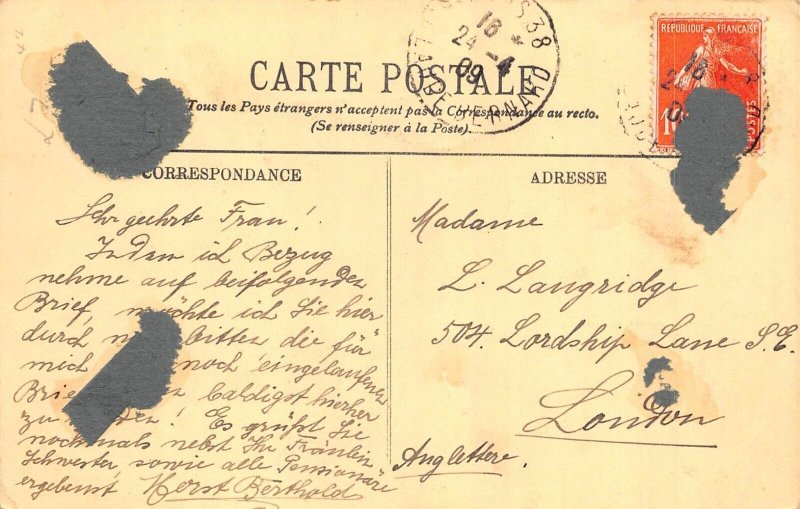 PARIS 38
16
24 -4
09
RÉPUBLIQUE FRANÇAISE
16
10
POSTES
CARTE POSTALE
Tous les Pays étrangers n'acceptent pas la Correspondance au recto.
(Se renseigner à la Poste).
CORRESPONDANCE
ADRESSE
Sehr geehrte Frau!
Indem ich Bezug
nehme auf beifolgenden
Brief, möchte ich Sie hier
durch bitten die für
mich noch eingelaufenen
baldigst hierher
zu ! Es grüßt Sie
nochmals nebst Ihr Fräulein
Schwester, sowie alle Pensionäre
ergebenst Horst Berthold
Madame
L. Langridge
504. Lordship Lane S.E.
London
Anglettere.